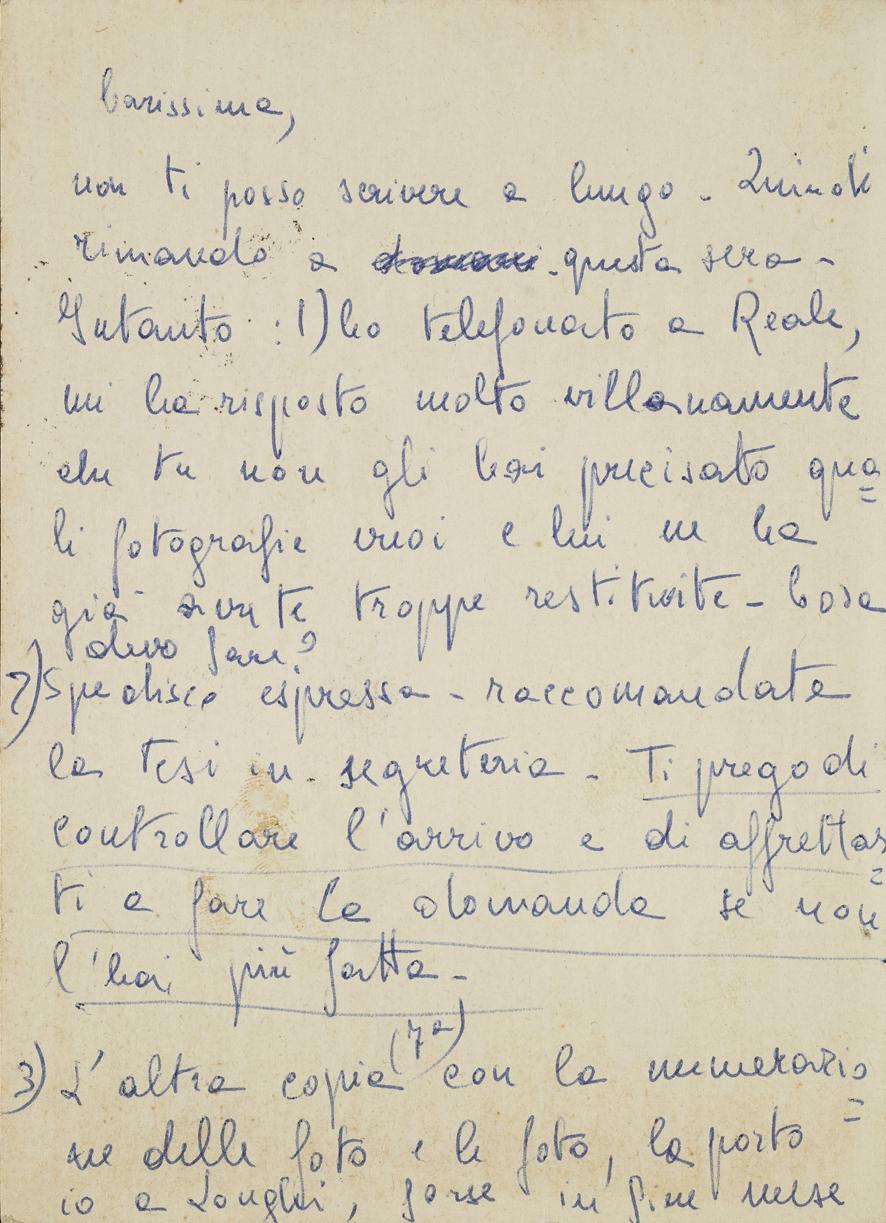 Carissima,
non ti posso scrivere a lungo - Quindi
rimando a domani questa sera -
Intanto : 1) ho telefonato a Reale,
mi ha risposto molto villanamente
che tu non gli hai precisato qua=
li fotografie vuoi e lui ne ha
già avute troppe restituite - Cosa
devo fare?
2) Spedisco espressa - raccomandata
la tesi in segreteria - Ti prego di
controllare l'arrivo e di affrettar=
ti a fare la domanda se non
l'hai più fatta -
3) L'altra copia (7ª) con la numerazio=
ne delle foto e le foto, la porto
io a Longhi, forse in fine mese